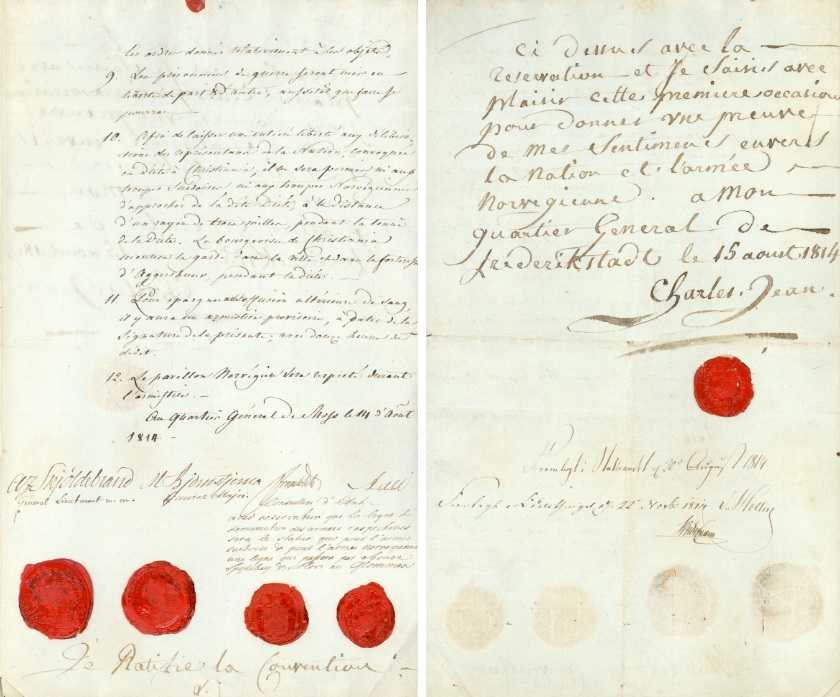 les ordres donnés relativement à ces objets.
9. Les prisonniers de guerre seront mis en
liberté de part et d'autre, aussitôt que faire se
pourra.
10. Afin de laisser une entière liberté aux délibéra-
tions des représentans de la Nation, convoqués
en diète à Christiania, il ne sera permis ni aux
troupes Suédoises ni aux troupes Norvégiennes
d'approcher de la dite Diète, à la distance
d'un rayon de trois milles, pendant la tenue
de la diète. La bourgeoisie de Christiania
montera la garde dans la ville et dans la forteresse
d'Aggerhuus, pendant la diète.
11. Pour épargner une effusion ultérieure de sang,
il y aura un armistice provisoire, à dater de la
signature de la présente, avec douze heures de
dédit.
12. Le pavillon Norvégien sera respecté durant
l'armistice.
Au Quartier Général de Moss le 14 d'Août
1814
Skjöldebrand M Björnstjerna Aall
General Lieutenant General Major Conseillers d'Etat
avec reservation que la ligne de
demarcation des armées respectives
sera le status quo pour l'armée
suedoise & pour l'armée norvegienne
une ligne qui passera par
Glommen
Je Ratifie la Convention
ci dessus avec la
reservation et Je Saisis avec
plaisir cette premiere occasion
pour donner une preuve
de mes Sentiments envers
la Nation et l'armée
Norvegienne. a Mon
quartier General de
frederikstadt le 15 aoust 1814
Charles Jean.
30 August 1814
22 Novbr 1814